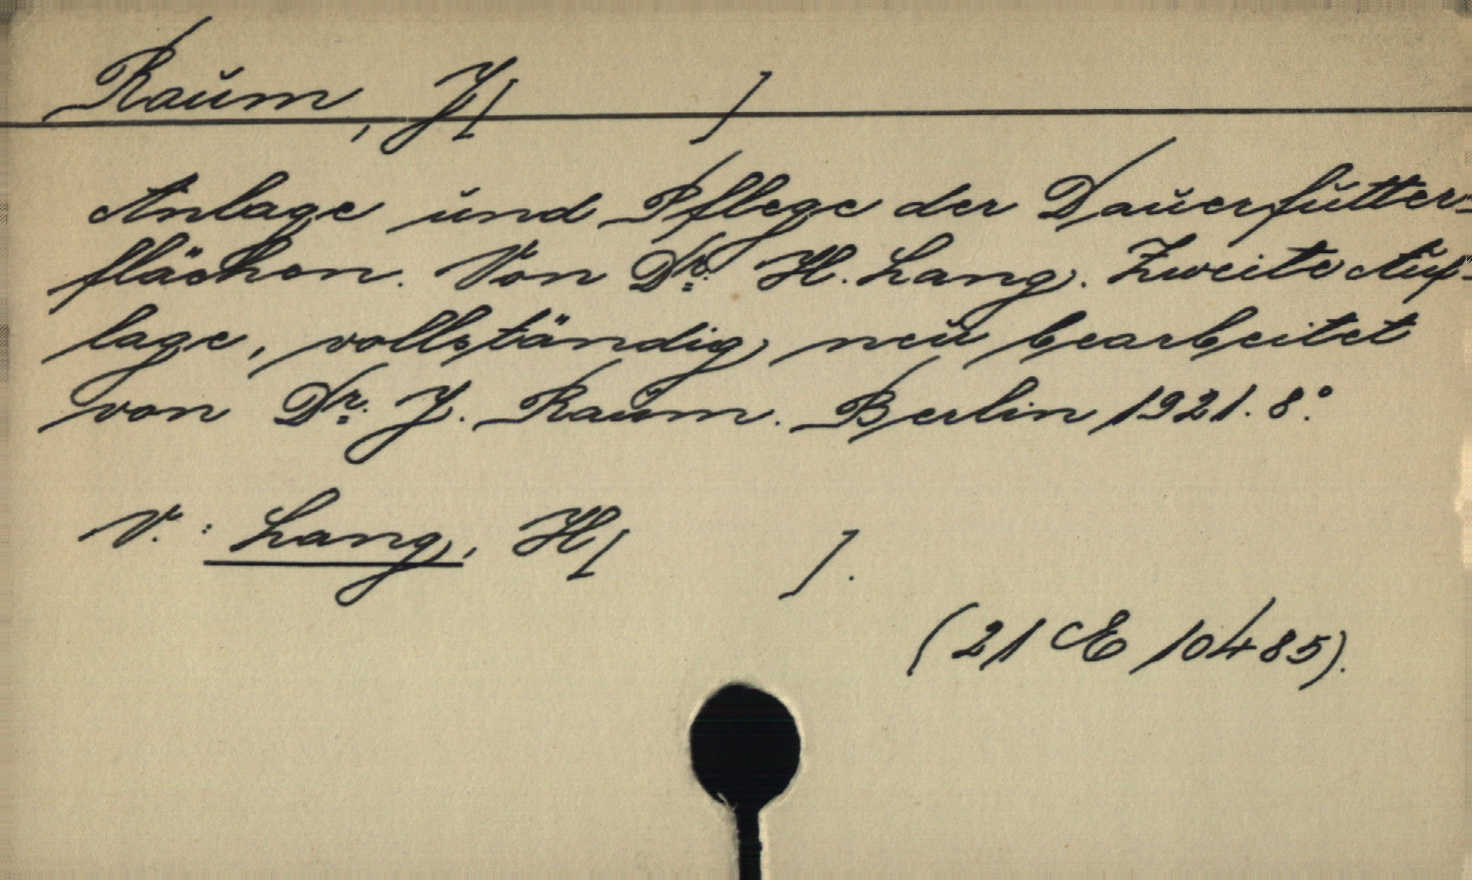 Raum, J[ ]
Anlage und Pflege der Dauerfutter=
flächen. Von Dr. H. Lang. Zweite Auf=
lage, vollständig neu bearbeitet
von Dr. J. Raum. Berlin 1921. 8.°
V.: Lang, H[ ].
(21 E 10485).